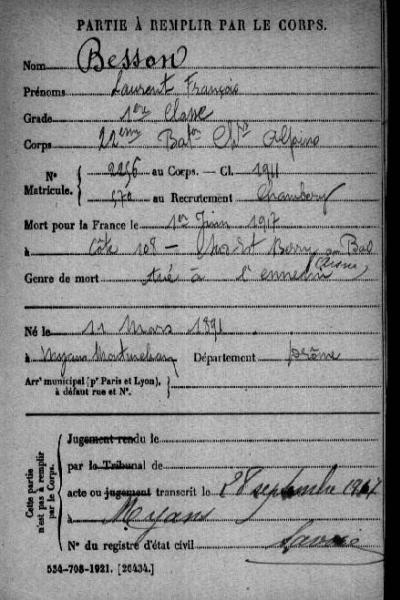 PARTIE À REMPLIR PAR LE CORPS.
Nom Besson
Prénoms Laurent François
Grade 1ère Classe
Corps 22ème Baton Chrs Alpins
Nº Matricule. 2256 au Corps. — Cl. 1911
570 au Recrutement Chambéry
Mort pour la France le 1er Juin 1917
à Côte 108 — Berry au Bac
(Aisne)
Genre de mort tué à l'ennemi
Né le 11 Mars 1891
à Département Drôme
Arrt municipal (pr Paris et Lyon), à défaut rue et Nº.
Cette partie n'est pas à remplir par le Corps.
Jugement rendu le
par le Tribunal de
acte ou jugement transcrit le 28 septembre 1917
à Myans
Savoie
Nº du registre d'état civil
534-708-1921. [26434.]